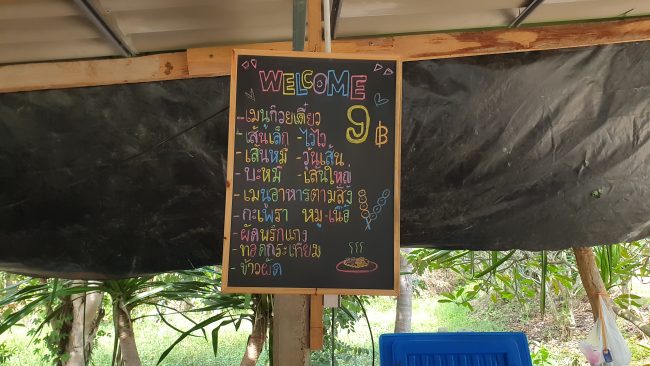 WELCOME
- เมนูก๋วยเตี๋ยว
9 ฿
- เส้นเล็ก - ไวไว
- เส้นหมี่ - วุ้นเส้น
- บะหมี่ - เส้นใหญ่
- เมนูอาหารตามสั่ง
- กะเพรา หมู-เนื้อ
- ผัดพริกแกง
- ทอดกระเทียม
- ข้าวผัด